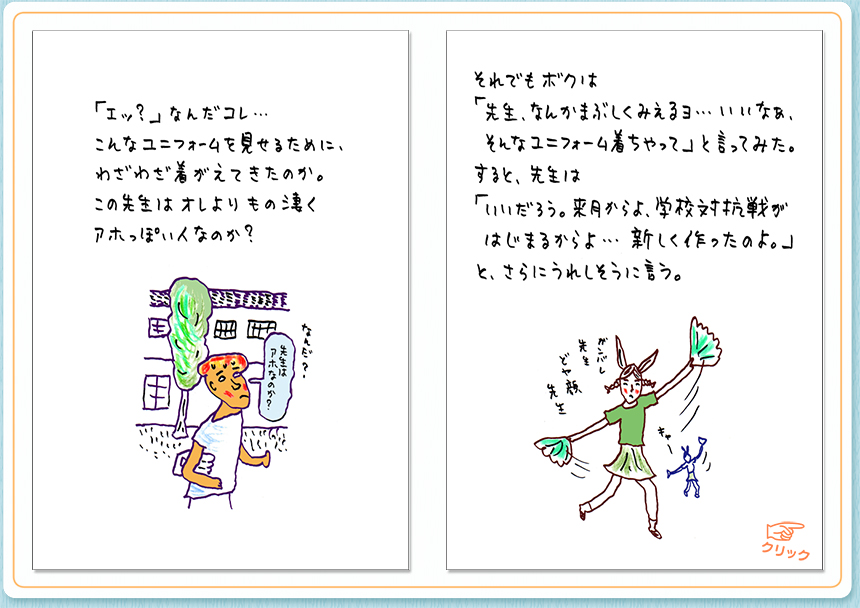 「エッ？」なんだコレ…
こんなユニフォームを見せるために、
わざわざ着がえてきたのか。
この先生はオレよりもの凄く
アホっぽい人なのか？
なんだ？・
先生は
アホなのか？
それでもボクは
「先生、なんかまぶしくみえるヨ…いいなぁ、
そんなユニフォーム着ちゃって」と言ってみた。
すると、先生は
「いいだろう。来月からよ、学校対抗戦が
はじまるからよ… 新しく作ったのよ。」
と、さらにうれしそうに言う。
ガンバレ
先生
どや顔
先生
キャー
クリック